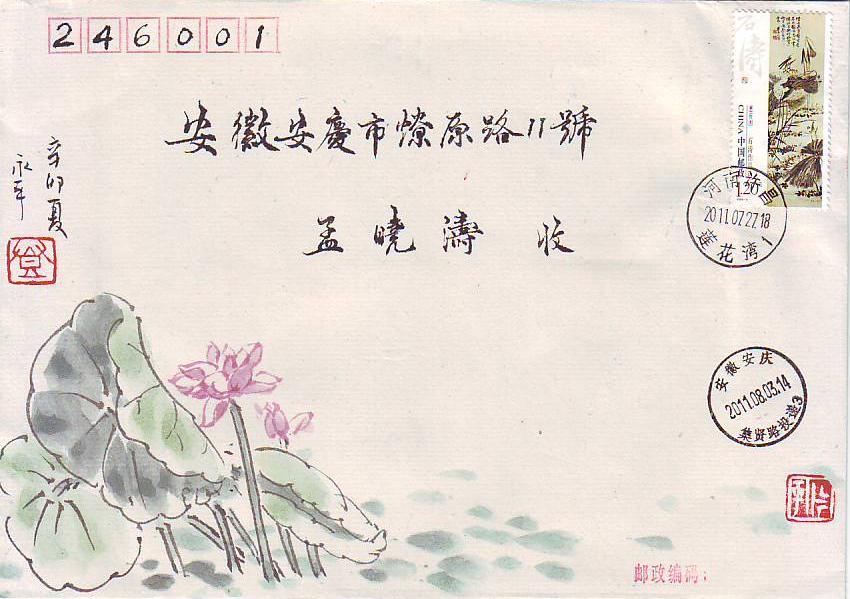 246001
安徽安慶市燎原路11號
孟曉濤 收
辛卯夏
永平
石涛
CHINA 中国邮政
1.20
河南许昌
2011.07.27.18
莲花湾1
安徽安庆
2011.08.03.14
集贤路投递3
邮政编码：